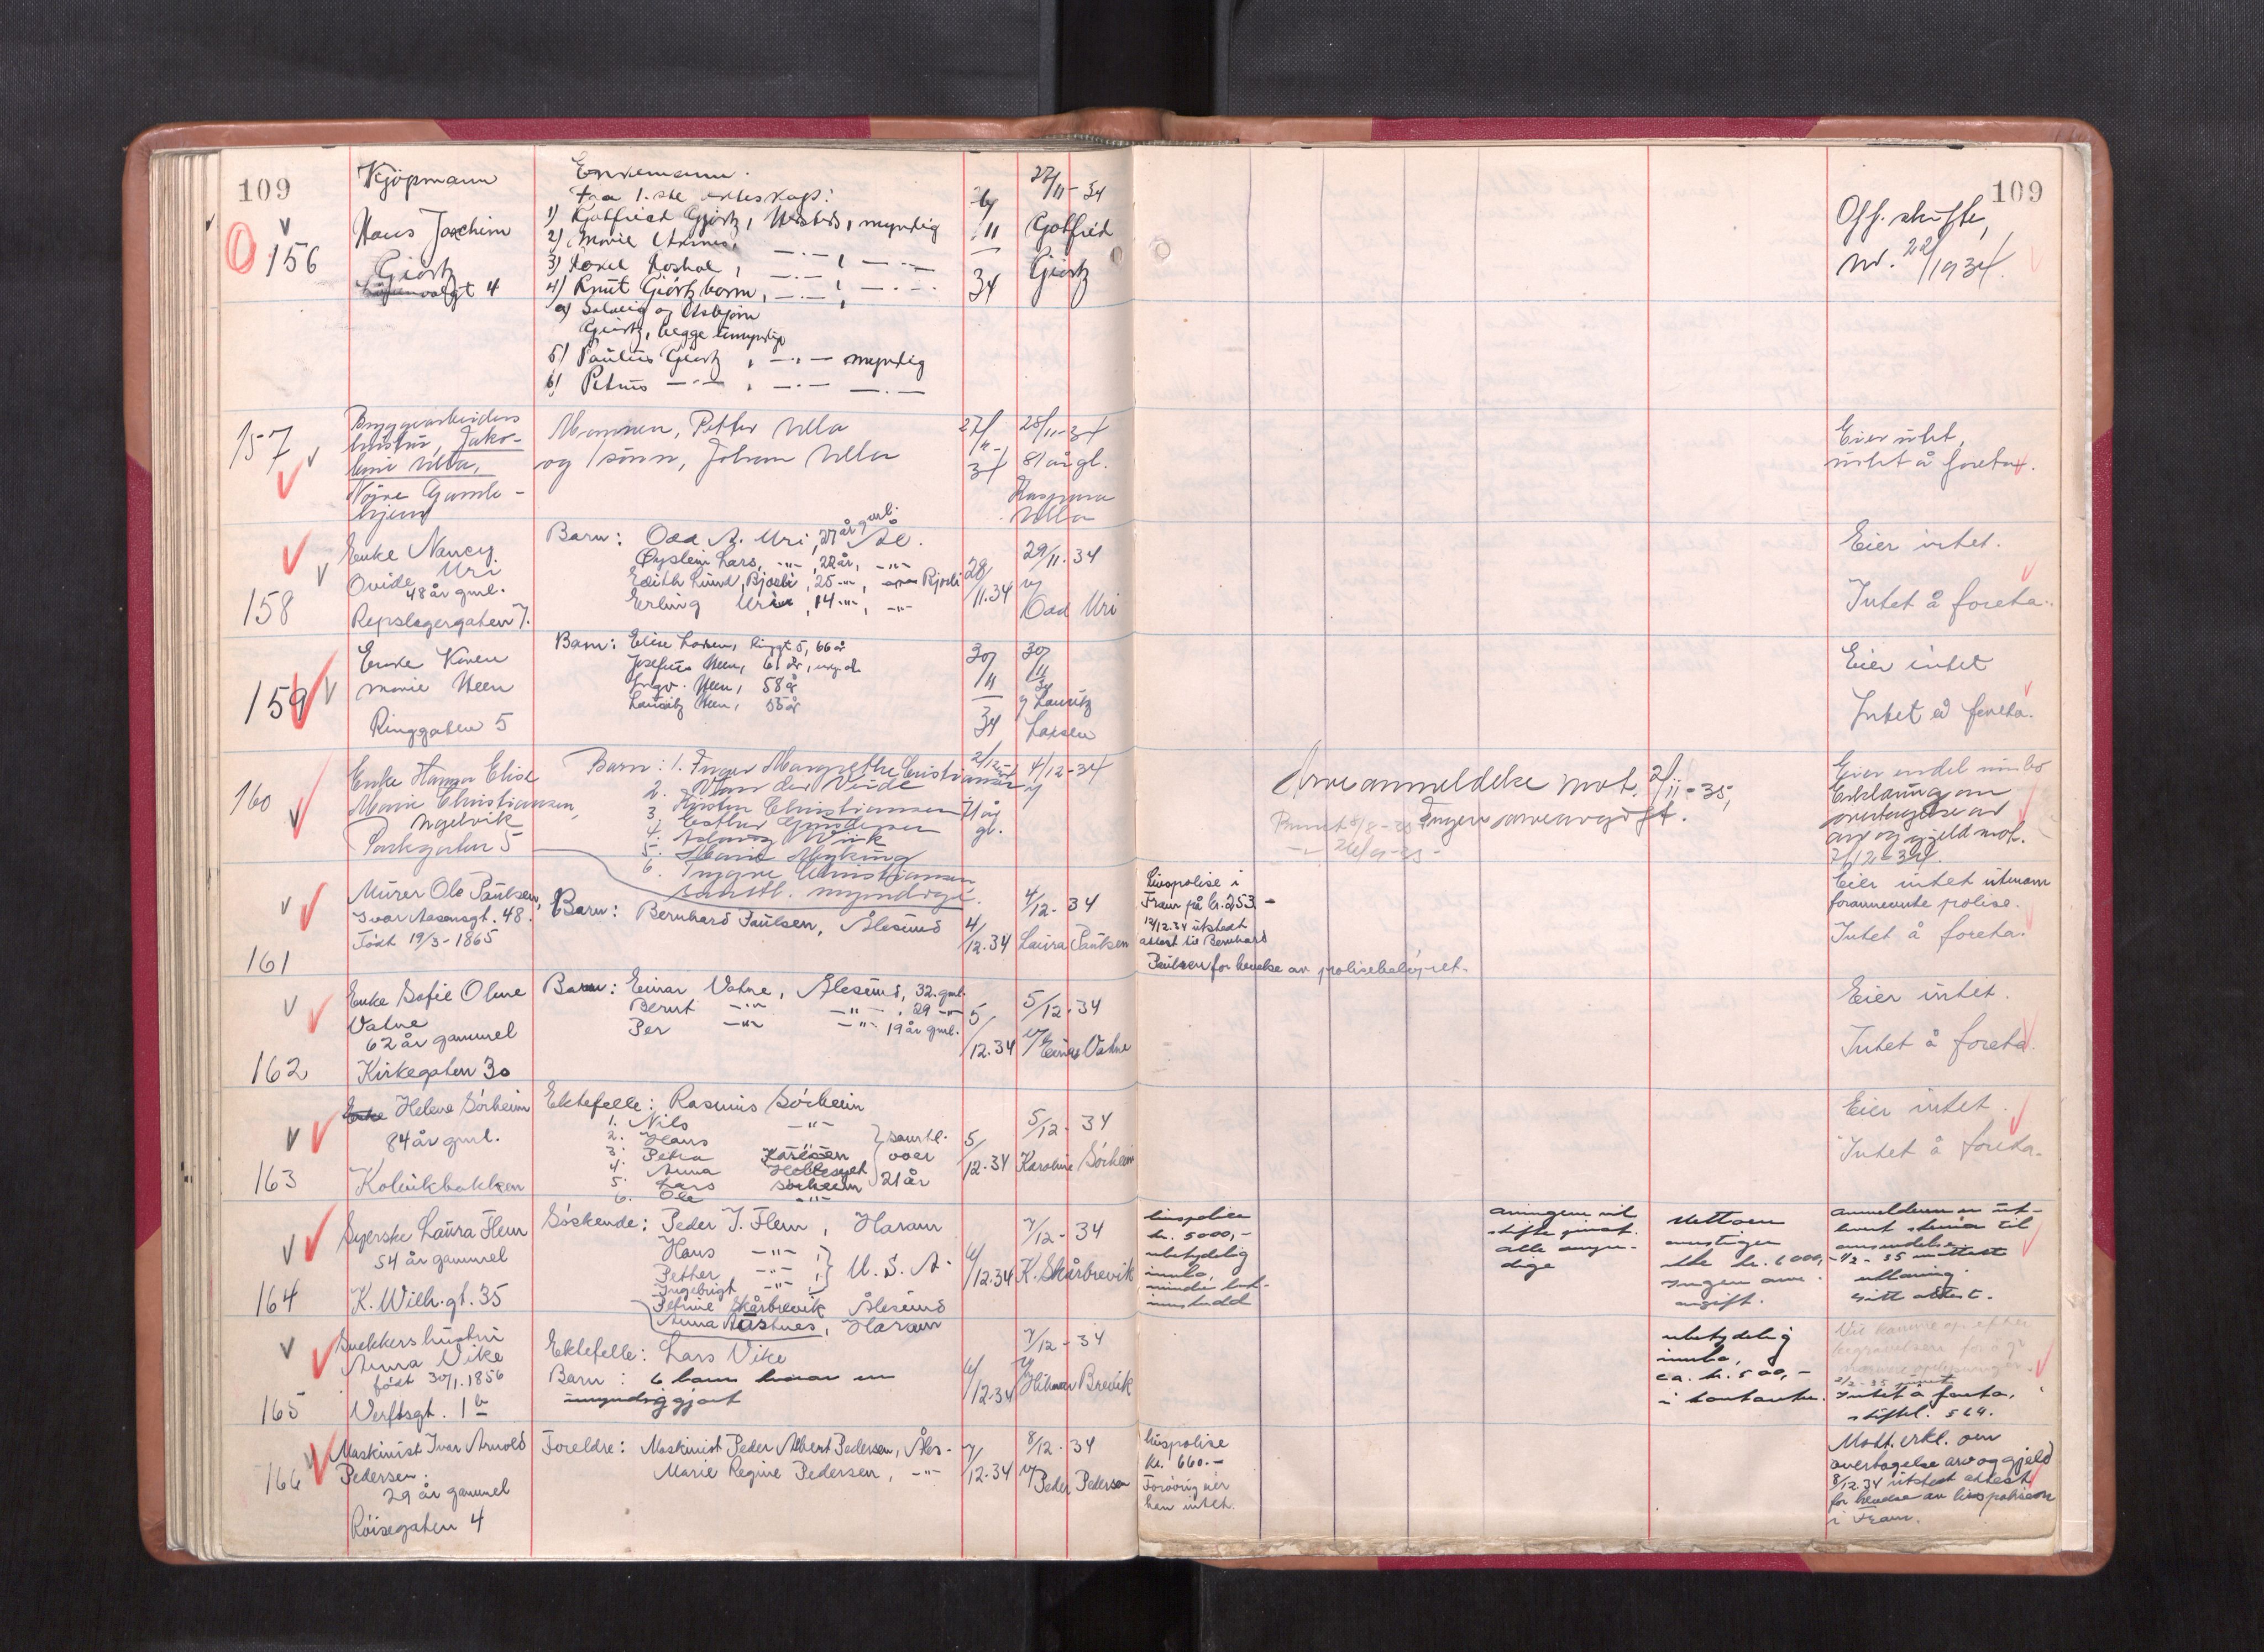 109
156
Kjøpmann
Hans Joachim
Giørtz
Enkemann.
fra 1.ste ekteskap:
1) Gotfried Giørtz, myndig
2) Marie
3) Aksel
4) Knut Giørtz barn,
a) Solveig og Asbjørn
Giørtz, begge umyndige
5) Paulus Giørtz, —"— myndig
6) Petrus —"—, —"— —"—
11
34
27/11-34
Gotfred
Giørtz
157
Bryggearbeiders
hustru, Jako-
bine Ulla,
Nøyre Gamle-
hjem
Mannen, Petter Ulla
og 1 sønn, Johan Ulla
27/
11-
34
28/11-34
81 år gl.
Kaspara
Ulla
158
Enke Nancy
Ovide Uri
48 år gml.
Repslagergaten 7.
Barn: Odd A. Uri, 27 år gml.
Øystein Lars, -"-, 22 år, -"-
Edith Lund, 25 -"-,
Erling Uri, 14 -"-, -"-
28/
11.34
29/11.34
v/
Odd Uri
159
Enke Karen
Marie Steen
Ringgaten 5
Barn: Elise Larsen, Ringgt 5, 66 år
Josefine Steen, 61 år,
Ingv. Steen, 58 år
Lauritz Steen, 55 år
30/
11
34
30/
11
34
v/ Lauritz
Larsen
160
Enke Hanna Elise
Marie Christiansen,
Parkgaten 5
Barn: 1. Inger Margrethe Cristiansen
2. Van der Veide
3. Kirsten Christiansen
3. Esther Gundersen
4. Aslaug Wiik
5. Marie Myking
6. Yngve Christiansen
samtl. myndige.
2/12-34
4/12-34
71 år
gl.
161
Murer Ole Paulsen,
Ivar Aasensgt. 48.
Født 19/3-1865
Barn: Bernhard Paulsen, Ålesund
4/
12.34
4/12-34
Laura Paulsen
162
Enke Sofie Oline
Vatne
62 år gammel
Kirkegaten 30
Barn: Einar Vatne, Ålesund, 32. gml.
Bernt -"- -"-, 29 -"-
Per -"- -"- 19 år gml.
5/
12.34
5/12.34
v/ Einar Vatne
163
Enke Helene Sørheim
84 år gml.
Kolvikbakken
Ektefelle: Rasmus Sørheim
1. Nils -"-
2. Hans -"-
3. Petra Karlsen
4. Anna
5. Lars Sørheim
6. Ole -"-
samtl.
over
21 år
5/
12.34
5/12.34
Karoline Sørheim
164
Syerske Laura Flem
54 år gammel
K. Wilh. gt. 35
Søskende: Peder J. Flem, Haram
Hans -"-
Petter -"-
Ingebrigt -"-
U.S.A.
Petrine Skårbrevik Ålesund
Anna Austnes, Haram
6/
12.34
7/12-34
K. Skårbrevik
165
Snekkers hustru
Anna Vike
født 30/1.1856
Verftsgt. 1 b
Ektefelle: Lars Vike
Barn: 6 barn hvorav en
umyndiggjort
6/
12.34
7/12-34
v/
Hilmar Brevik
166
Maskinist Ivar Arnold
Pedersen.
29 år gammel
Røisegaten 4
Foreldre: Maskinist Peder Albert Pedersen, Åles.
Marie Regine Pedersen, -"-
7/
12.34
8/12.34
v/
Peder Pedersen
109
Off. skifte,
nr. 22/1934.
Eier intet,
intet å foreta.
Eier intet.
Intet å foreta.
Eier intet
Intet å foreta.
Arveanmeldelse mot. 2/11-35,
Ingen arveavgift.
Eier endel innbo
Erklæring om
overtagelse av
arv og gjeld mot.
7/12-34.
Livspolise i
Fram på kr. 253 -
12/12.34 utstedt
attest til Bernhard
Paulsen for hevelse av polisebeløpet.
Eier intet utenom
forannevnte polise.
Intet å foreta.
Eier intet.
Intet å foreta.
Eier intet.
Intet å foreta.
livspolice
kr. 5000,-
ubetydelig
innbo,
alle myn-
dige
Nettoen
overstiger
ikke kr. 6000,-
Ingen arve-
avgift.
anmelderen er ut-
levert skema til
innsendelse.
utlodning.
ubetydelig
innbo,
ca. kr. 500,-
i kontanter.
Vil komme op efter
begravelsen for å gi
nærmere oplysninger.
Intet å foreta,
livspolise
kr. 660.-
Forøvrig eier
han intet.
Mott. erkl. om
overtagelse arv og gjeld
8/12.34 utstedt attest
for hevelse av livspolisen
i Fram.